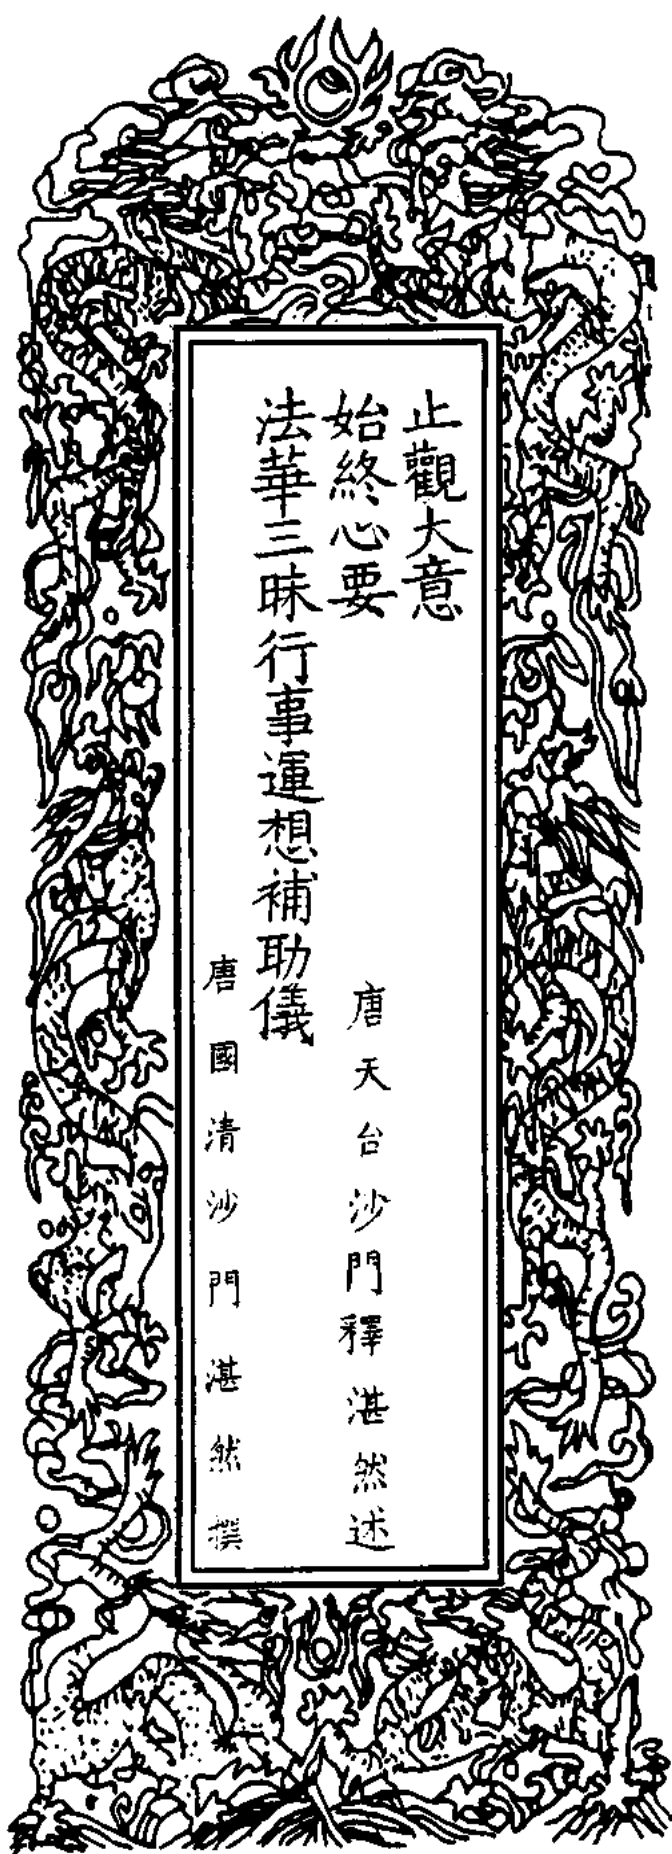 止觀大意
始終心要
唐天台沙門釋湛然述
法華三昧行事運想補助儀
唐國清沙門湛然撰